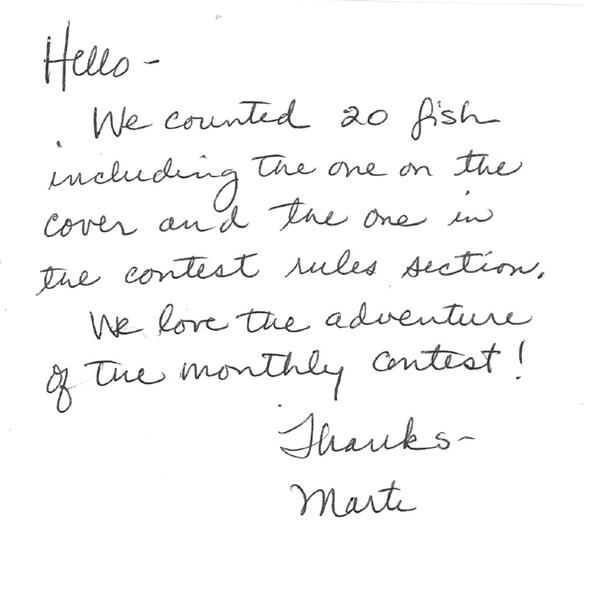 Hello -
We counted 20 fish
including the one on the
cover and the one in
the contest rules section.
We love the adventure
of the monthly contest!
Thanks -
Marti